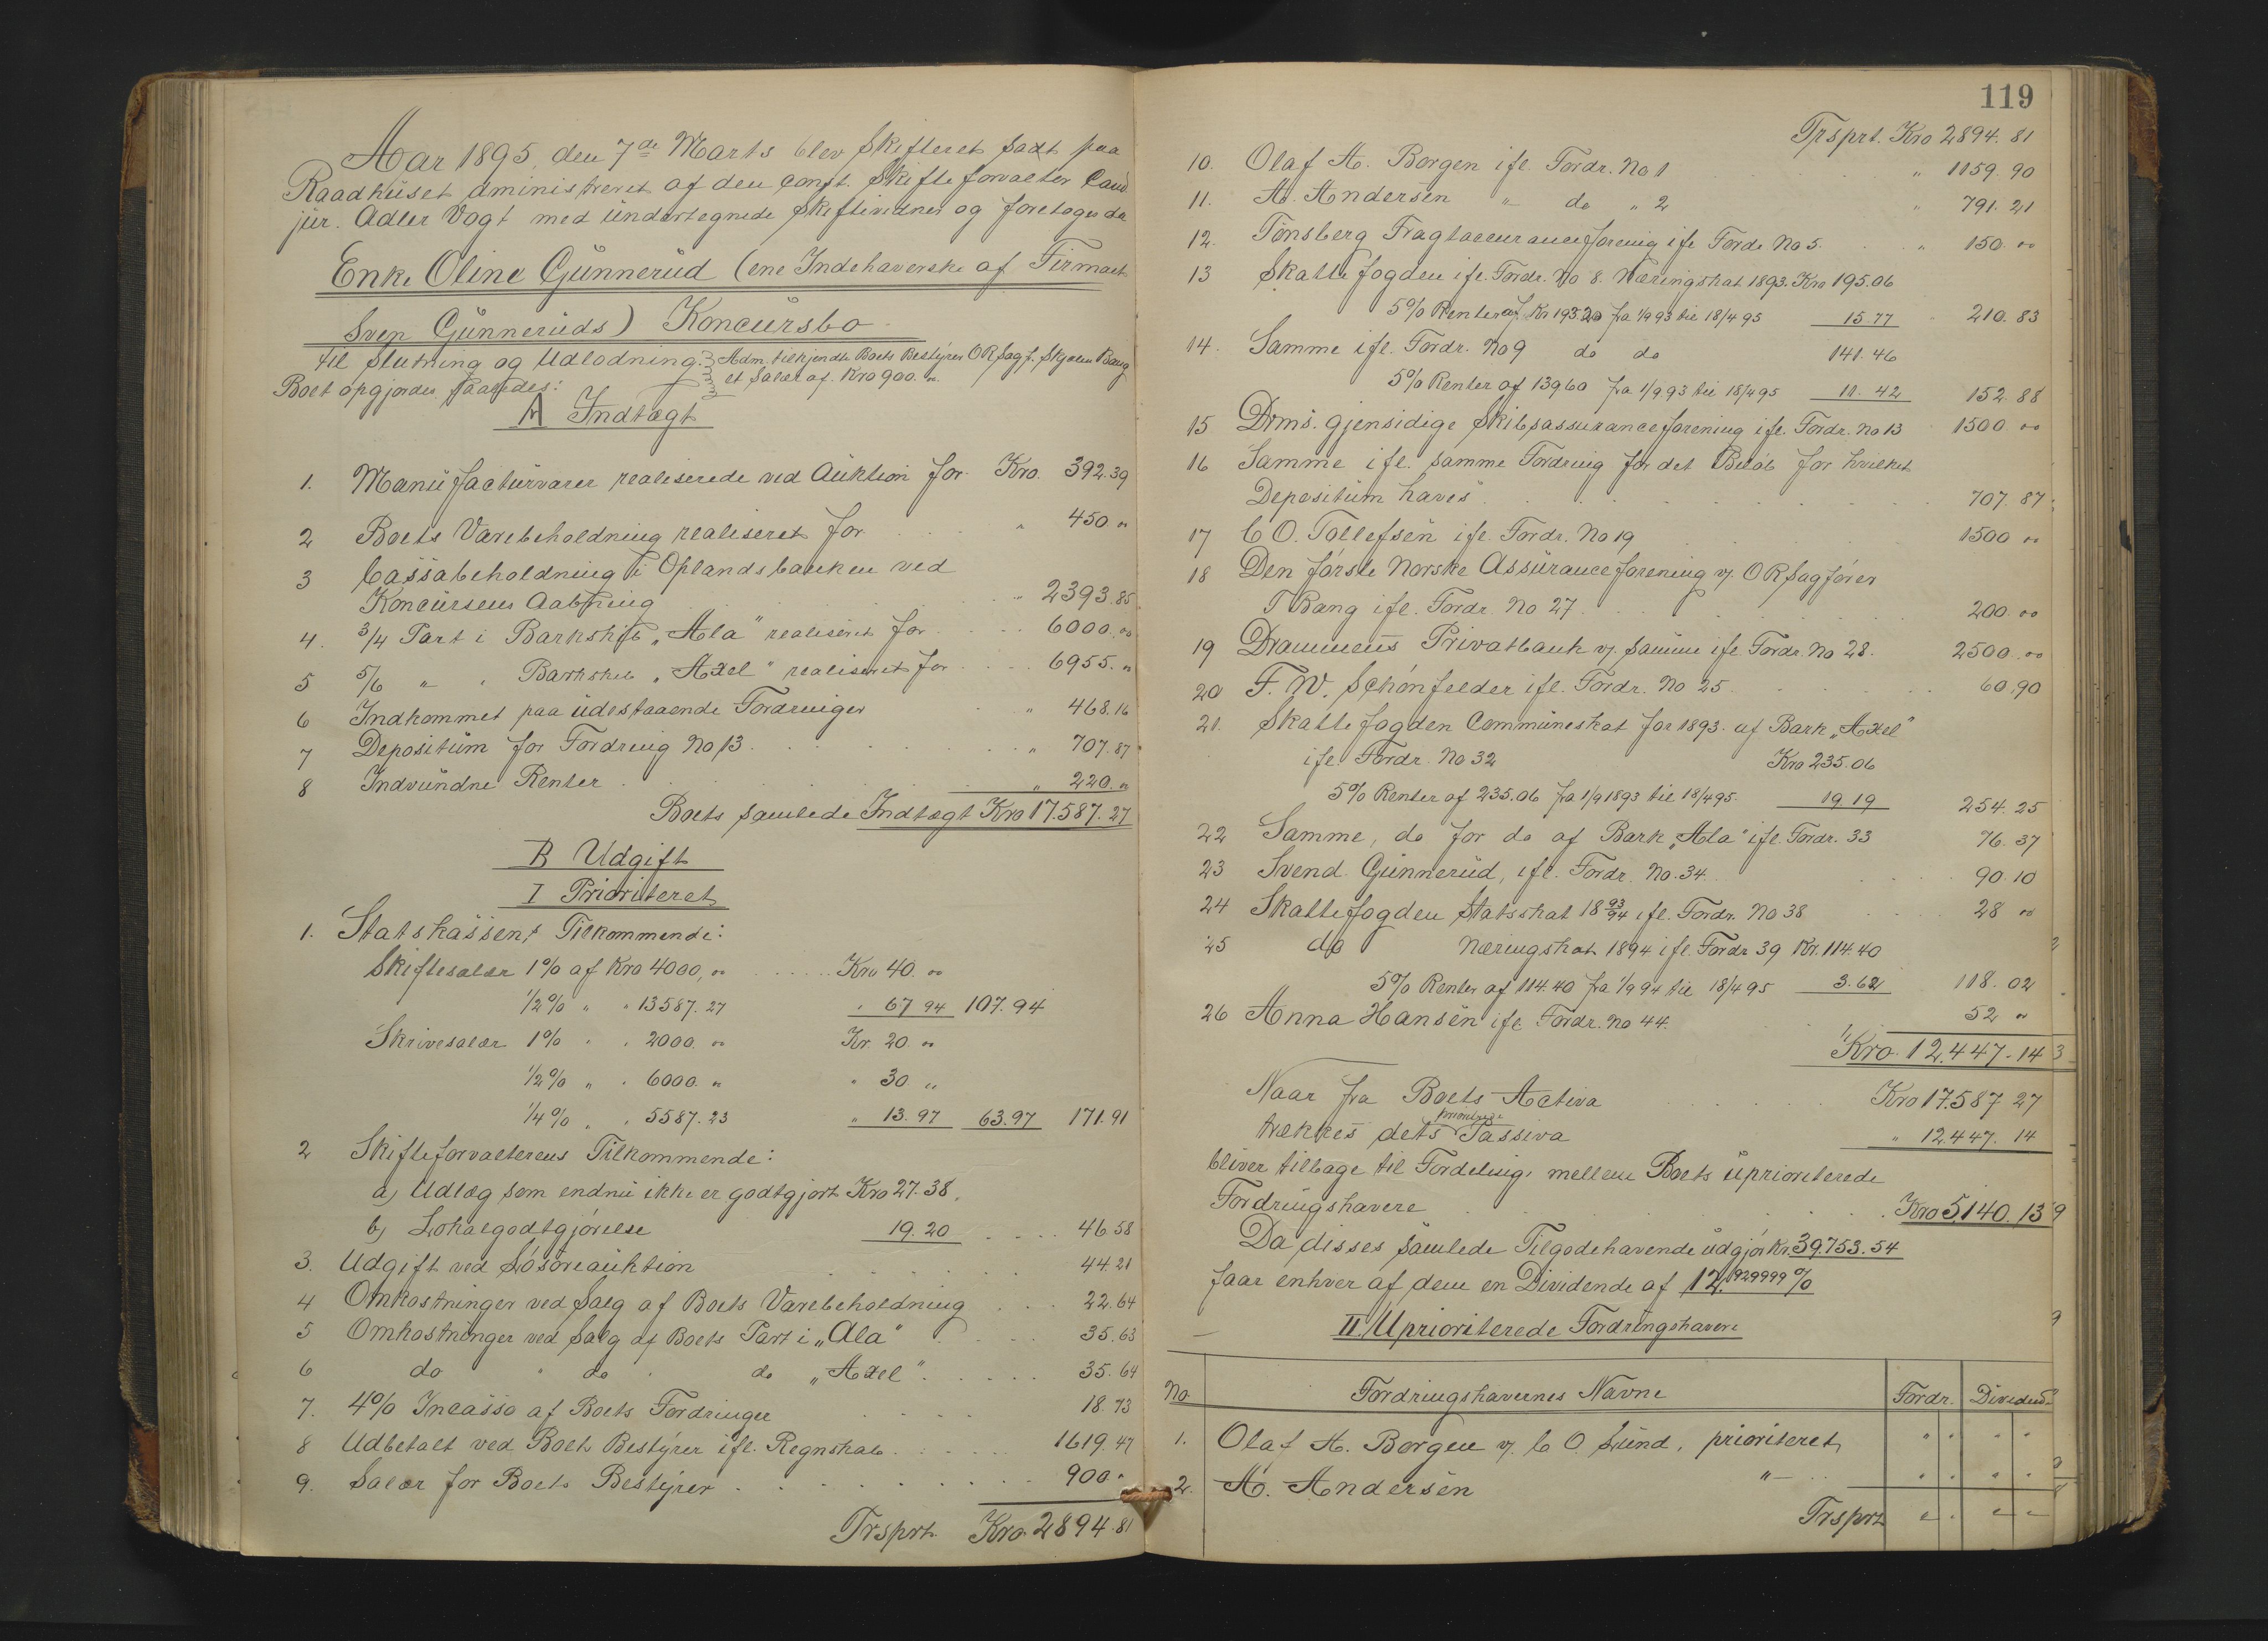 Aar 1895, den 7de Marts blev Skifteret sadt paa
Raadhuset administreret af den const. Skifteforvalter Cand
jur. Adler Vogt med undertegnede Skiftevidner og foretoges da
Enke Oline Gunnerud (ene Indehaverske af Firmaet
Sven Gunneruds) Koncursbo
til Slutning og Udlodning. Adm. tilkjendte Boets Bestyrer ORSagf. Skjelm Bang
et Salær af Kro 900. "
Boet opgjordes saaledes:
A Indtægt
1. Manufacturvarer realiserede ved Auktion for Kro. 392.39
2 Boets Varebeholdning realiseret for " 450 "
3 Cassabeholdning i Oplandsbanken ved
Koncursens Aabning " 2393.85
4. 3/4 Part i Barkskib "Ala" realiseret for 6000.00
5 5/6 " " Barkskib "Axel" realiseret for 6955. "
6 Indkommet paa udestaaende Fordringer " 468.16
7 Depositum for Fordring No 13 " 707.87
8 Indvundne Renter " 220. "
Boets samlede Indtægt Kro 17.587.27
B Udgift
I Prioriteret
1. Statskassens Tilkommende:
Skiftesalær 1% af Kro 4000,00 Kro 40.00
1/2% " " 13587.27 " 67 94 107.94
Skrivesalær 1% " " 2000.00 Kr. 20.00
1/2% " " 6000. " " 30 "
1/4% " " 5587.23 " 13.97 63.97 171.91
2 Skifteforvalterens Tilkommende:
a) Udlæg som endnu ikke er godtgjort Kro 27.38.
b) Lokalgodtgjørelse 19.20 46.58
3. Udgift ved Løsøreauktion 44.21
4 Omkostninger ved Salg af Boets Varebeholdning 22.64
5 Omkostninger ved Salg af Boets Part i "Ala" 35.63
6 do " do " do "Axel" 35.64
7. 4% Incasso af Boets Fordringer 18.73
8 Udbetalt ved Boets Bestyrer ifl. Regnskab 1619.47
9. Salær for Boets Bestyrer 900. "
Trsprt. Kro 2894.81
119
Trsprt. Kro 2894.81
10. Olaf A. Borgen ifl. Fordr. No 1 " 1159.90
11. A. Andersen " do " 2 " 791.21
12. Tønsberg Fragtaccuranceforening ifl. Fordr No 5. " 150.00
13 Skattefogden ifl. Fordr. No 8. Næringskat 1893. Kro 195.06
5% Renter af Kr 193 20 fra 1/9 93 til 18/4 95 15.77 210.83
14. Samme ifl. Fordr. No 9 do do 141.46
5% Renter af 139 60 fra 1/9 93 til 18/4 95 11.42 152.88
15 Drms. gjensidige Skibsassuranceforening ifl. Fordr. No 13 1500 00
16 Samme ifl. samme Fordring for det Beløb for hvilket
Depositum haves 707.87
17 C O. Tollefsen ifl. Fordr. No 19 1500 00
18 Den første Norske Assuranceforening v. ORSagfører
T Bang ifl. Fordr. No 27 200.00
19 Drammens Privatbank v. samme ifl. Fordr. No 28. 2500.00
20 F. W. Schönfelder ifl. Fordr. No 25 60,90
21. Skattefogden Communeskat for 1893. af Bark "Axel"
ifl. Fordr. No 32 Kro 235.06
5% Renter af 235.06 fra 1/9 1893 til 18/4 95. 19 19 254.25
22 Samme, do for do af Bark "Ala" ifl. Fordr. 33 76.37
23 Svend Gunnerud, ifl. Fordr. No. 34. 90.10
24 Skattefogden Statsskat 18 93/94 ifl. Fordr. No 38 28 00
25 do Næringskat 1894 ifl. Fordr 39 Kr. 114.40
5% Renter af 114.40 fra 1/9 94 til 18/4 95 3.62 118.02
26 Anna Hansen ifl. Fordr. No 44. 52 "
Kro 12.447.14
Naar fra Boets Activa Kro 17.587 27
trækkes dets prioriterede Passiva " 12.447.14
bliver tilbage til Fordeling mellem Boets uprioriterede
Fordringshavere Kro 5,140.13
Da disses samlede Tilgodehavende udgjør Kr. 39.753.54
faar enhver af dem en Dividende af 12,929999 %
II. Uprioriterede Fordringshavere
No Fordringshavernes Navne Fordr. Dividend
1. Olaf A. Borgen v. C O. Lund, prioriteret " " " "
2. A. Andersen " " " " "
Trsprt " " " "